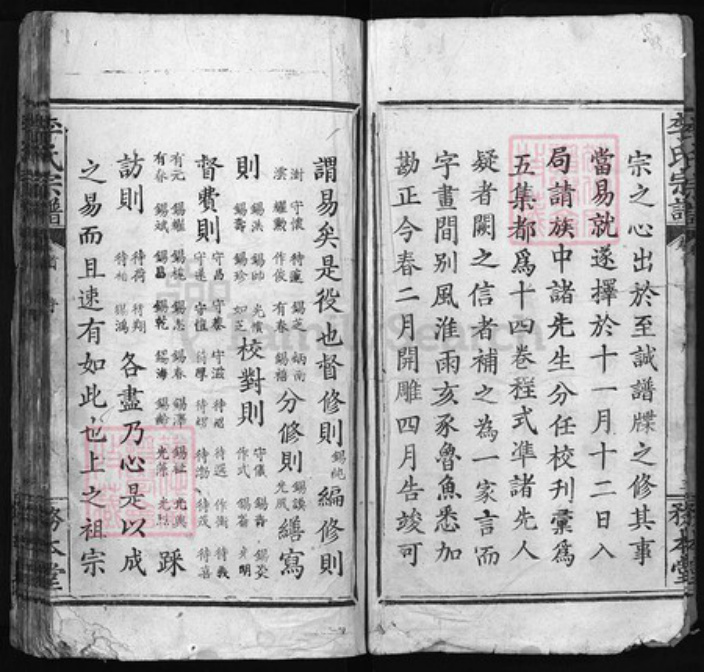 宗之心出於至誠譜牒之修其事
當易就遂擇於十一月十二日入
局請族中諸先生分任校刊彙爲
五集都爲十四卷程式準諸先人
疑者闕之信者補之為一家言而
字畫間别風淮雨亥豕魯魚悉加
勘正今春二月開雕四月告竣可
謂易矣是役也督修則錫純編修則
澍 守懷 特蓮 錫芝 炳南
濱 耀勲 作俊 有春 錫禧 分修則 錫謨 光風 繕寫
則 錫洪 錫帥 光懷 錫壽 錫珍 如芝 校對則 守儀 錫壽 錫奕 作式 錫齋 明
督費則 守昌 守春 守滋 待紹 待選 作衡 待義 守遠 守恒 待學 待熠 待渤 待茂 待喜
有元 錫繼 錫純 錫忠 錫春 錫澤 錫祉 光興
有春 錫斌 錫昌 錫乾 錫海 錫齡 光藻 踩
訪則 待荷 待翔 待柏 鴻 各盡乃心是以成
之易而且速有如此也上之祖宗
李氏宗譜
務本堂
李氏宗譜
務本堂
FamilySearch